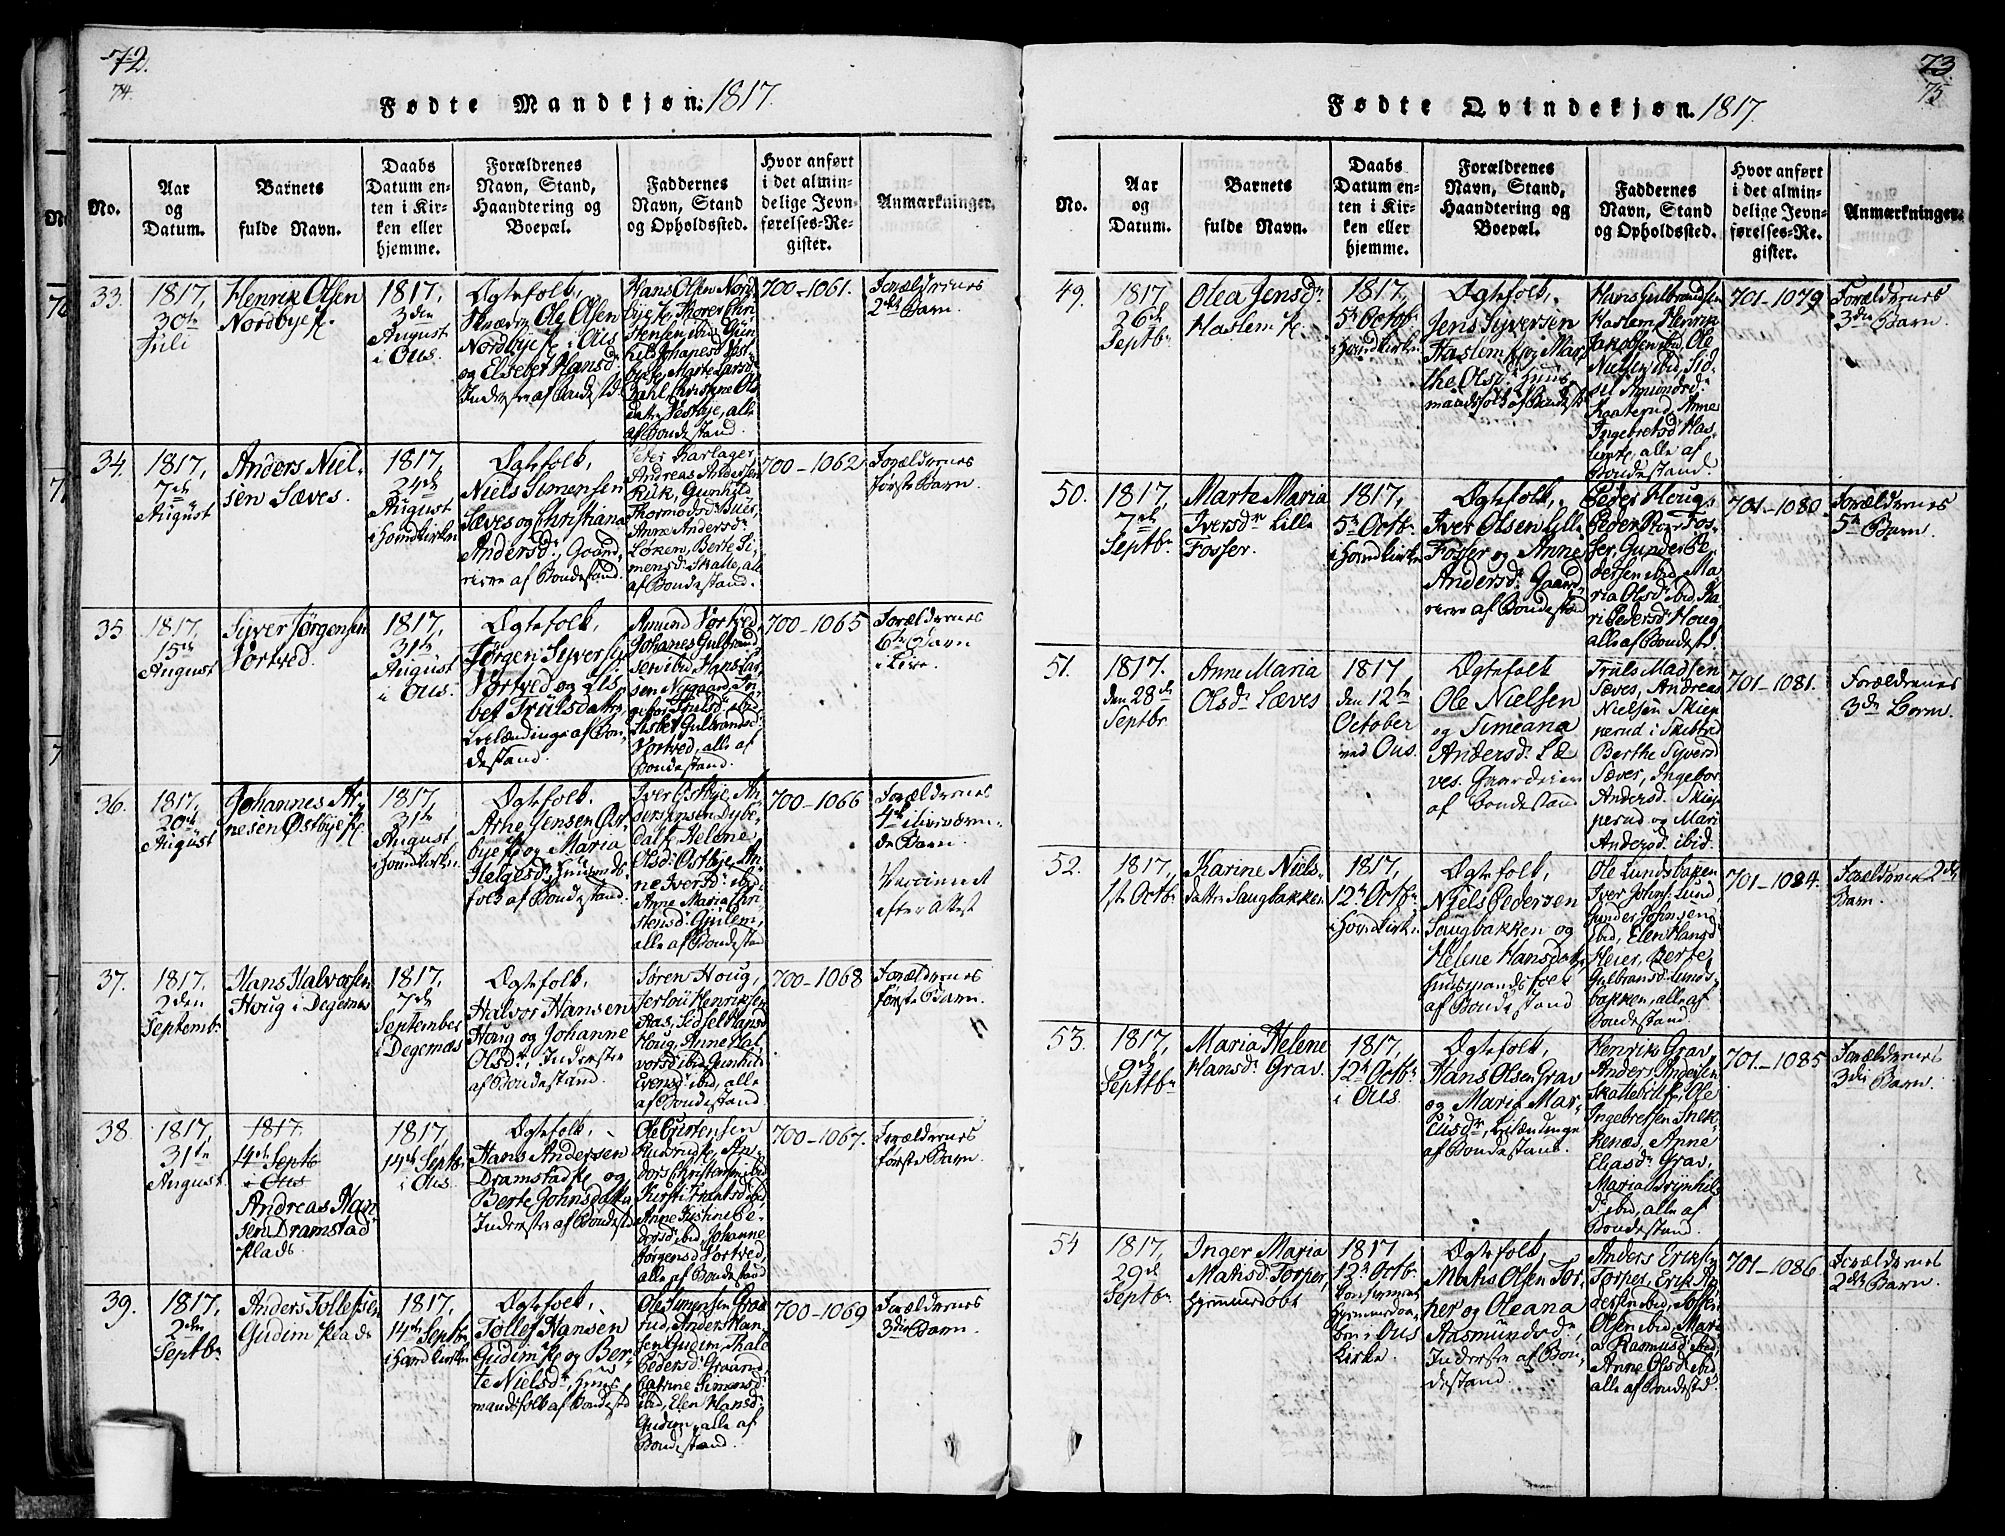 72.
74.
Fødte Mandkjøn. 1817.
No.
Aar
og
Datum.
Barnets
fulde Navn.
Daabs
Datum en-
ten i Kir-
ken eller
hjemme.
Forældrenes
Navn, Stand,
Haandtering og
Boepæl.
Faddernes
Navn, Stand
og Opholdssted.
Hvor anført
i det almin-
delige Jevn-
førelses-Re-
gister.
Anmærkninger.
33.
1817,
30te
Juli
Henrik Olsen
Nordbye
1817,
3den
August
i Ous.
Ægtefolk,
Ole Olsen
Nordbye i Ous
og Elsebet Hansd.
Inderster af Bondestd.
Hans Olsen Nord-
alle
af Bondestand.
700-1061.
Forældrenes
2det Barn.
34.
1817,
7de
August
Anders Niel-
sen Sæves.
1817,
24de
August
i Hovindkirken
Ægtefolk,
Niels Simensen
Sæves og Christiana
Andersd., Gaard-
af Bondestand.
Andreas Andersen
Anne Andersd.
Løken, Berte Si-
mensd. Skalle, alle
af Bondestand.
700-1062
Forældrenes
første Barn.
35
1817,
15de
August
Syver Jørgensen
Vortved.
1817,
31te
August
i Ous.
Ægtefolk,
Jørgen Syvers
Vortved og Elis-
bet Trulsdatr
af Bon-
destand.
Amund Vortved,
Johanes Gulbrand-
sen ibid, Hans Lar-
sen Nygaard, In-
geborg Trulsd. ibid,
Lisbet Gulbrandsd.
Vortved, alle af
Bondestand.
700-1065
Forældrenes
6te Barn
36.
1817,
20de
August
Johannes Ar-
nesen Østbye
1817,
31te
August
i Hovindkirken
Ægtefolk,
Arne Jensen Øst-
bye og Maria
Helgesd., Huusmds
folk af Bondestand.
Iver Østbye, An-
ders Jensen Dybe-
dal, Helene
Olsd. Østbye, An-
ne Iversd. ibid,
Anne Maria Chri-
stensd. Gullem,
alle af Bondestand
700-1066
Forældrenes
4de
Barn
Vaccineret
efter Attest
37.
1817.
2den
Septembr
Hans Halvorsen
Houg i Degernæs
1817,
7de
September
i Degernæs
Ægtefolk,
Halvor Hansen
Houg og Johanne
Olsdr, Inderster
af Bondestand.
Søren Houg,
Henriksen
Aas, Sidsel Hansd.
Houg, Anne Hal-
vorsd. ibid, Gunhild
Evensd. ibid, alle
af Bondestand
700-1068
Forældrenes
første Barn.
38.
1817.
31te
August.
1817.
14de Septb
i Ous
Andreas Han-
sen Dramstad
plads.
1817,
14de Septbr
i Ous.
Ægtefolk,
Hans Andersen
Dramstad og
Berte Johnsdatter
Inderster af Bondestd
Ole Christensen
Anne Kistine Pe-
dersd. ibid, Johanne
Jørgensd. Vortved,
alle af Bondestand
700-1067.
Forældrenes
første Barn.
39.
1817.
2den
Septbr
Anders Tollefsen
Gudim plads
1817,
14de Septbr
i Hovindkirken
Ægtefolk,
Tollef Hansen
Gudim og Ber-
te Nielsdr, Huus-
mandsfolk af Bondestd
Ole Simensen
Anders Han-
sen Gudim, Thale
Pedersd.
Catrine Simensd.
ibid, Elen Hansd.
Gudim, alle af
Bondestand.
700-1069
Forældrenes
3die Barn.
73.
75
Fødte Qvindekjøn. 1817.
No.
Aar
og
Datum.
Barnets
fulde Navn.
Daabs
Datum en-
ten i Kir-
ken eller
hjemme.
Forældrenes
Navn, Stand,
Haandtering og
Boepæl.
Faddernes
Navn, Stand
og Opholdssted.
Hvor anført
i det almin-
delige Jevn-
førelses-Re-
gister.
Anmærkninger.
49.
1817
26de
Septbr
Olea Jensdr
Haslem
1817,
5te Octbr
i Hovindkirken
Ægtefolk,
Jens Syversen
Haslem og Mar-
the Olsdr Huus-
mandsfolk af Bondestd
Hans Gulbrandsen
Haslem, Henrik
Jakobsen ibid, Ole
Nielsen ibid, Sid-
sel Amundsd.
Anne
Ingebretsd. Has-
lem, alle af
Bondestand
701-1079
Forældrenes
3die Barn.
50.
1817,
7de
Septbr
Marte Maria
Iversdr Lille
Fosser.
1817,
5te Octbr
i Hovindkirken
Ægtefolk,
Iver Olsen Lille
Fosser og Anne
Andersdr Gaard-
af Bondestand
Peder Houg,
Peder Fos-
ser, Gunder Pe-
dersen ibid, Ma-
ria Olsd. ibid, Ka-
ri Pedersd. Houg,
alle af Bondestd.
701-1080
Forældrenes
5te Barn.
51.
1817.
den 28de
Septbr
Anne Maria
Olsdr Sæves
1817
den 12te
October
ved Ous.
Ægtefolk
Ole Nielsen
og Simeana
Andersdr Sæ-
ves. Gaardeier
af Bondestand
Truls Madsen
Sæves, Andreas
Nielsen Skiep-
perud i Skibtved
Berthe Syversd.
Sæves, Ingebor
Andersd. Skiep-
perud og Mari
Andersd. ibid.
701-1081.
Forældrenes
3die Barn.
52.
1817,
1ste Octbr
Karine Niels-
datter Saugbakken
1817.
12te Octbr
i Hovindkirken
Ægtefolk,
Niels Pedersen
Saugbakken og
Helene Hansdatr
Huusmandsfolk
af Bondestand
Ole Lundsbakken
Iver Johns. Lund,
Gunder Johnsen
ibid, Elen Hansd.
Heier, Berte
Gulbransd. Lunds-
bakken, alle af
Bondestand.
701-1084.
Forældrenes 2det
Barn.
53.
1817.
9de
Septbr
Maria Helene
Hansdr Grav.
1817,
12te Octbr
i Ous.
Ægtefolk,
Hans Olsen Grav
og Maria Mar-
cusdr,
af Bondestand.
Henrik Grav,
Anders Andersen
Ole
Ingebretsen Snek-
kenæs, Anne
Eliasdr Grav,
Maria Brynhils-
dr ibid, alle af
Bondestand.
701-1085
Forældrenes
3die Barn.
54
1817,
29de
Septbr
Inger Maria
Mathisd. Torper,
Hjemmedøbt
1817
12te Octbr
Hjemmedaa-
ben i Ous
Kirke.
Ægtefolk,
Mathis Olsen Tor-
per og Oleana
Aasmundsdr,
Inderster af Bon-
destand.
Anders Eriksen
Torper, Erik An-
dersen ibid,
Olsen ibid, Mari-
a Rasmusd. ibid,
Anne Olsd. ibid
alle af Bondestd.
701-1086
Forældrenes
2det Barn.